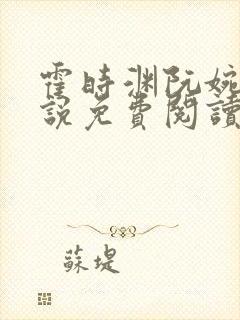 霍時渊阮婉
說免費閱讀
蘇堤